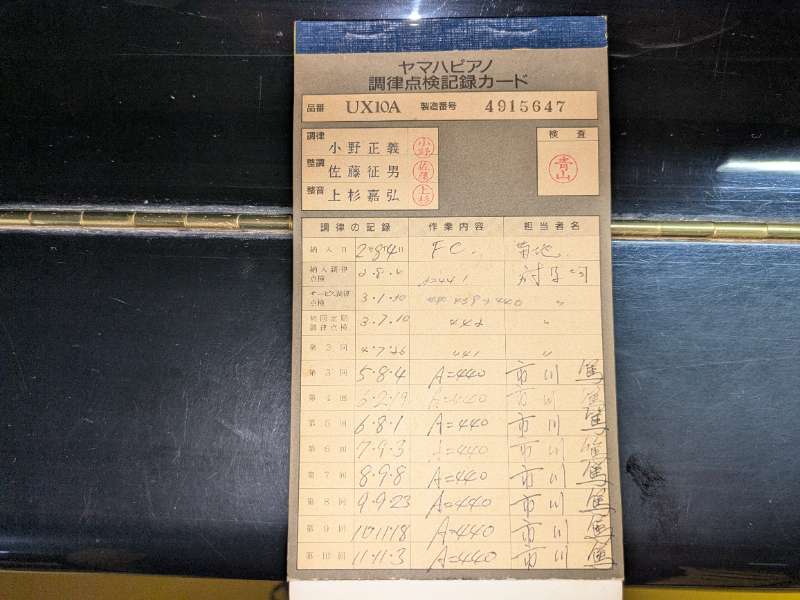 ヤマハピアノ
調律点検記録カード
品番 UX10A 製造番号 4915647
調律 小野正義 小野
整調 佐藤征男 佐藤
整音 上杉嘉弘 上杉
検査
青山
調律の記録 作業内容 担当者名
納入日 2.8.4 FC.
納入調律点検 A=441
サービス調律点検 3.1.10 〃
初回定期調律点検 3.7.10 〃
第2回 〃
第3回 5.8.4 A=440 市川 篤
第4回 6.2.19 A=440 市川 篤
第5回 6.8.1 A=440 市川 篤
第6回 7.9.3 A=440 市川 篤
第7回 8.9.8 A=440 市川 篤
第8回 9.9.23 A=440 市川 篤
第9回 10.11.18 A=440 市川 篤
第10回 11.11.3 A=440 市川 篤